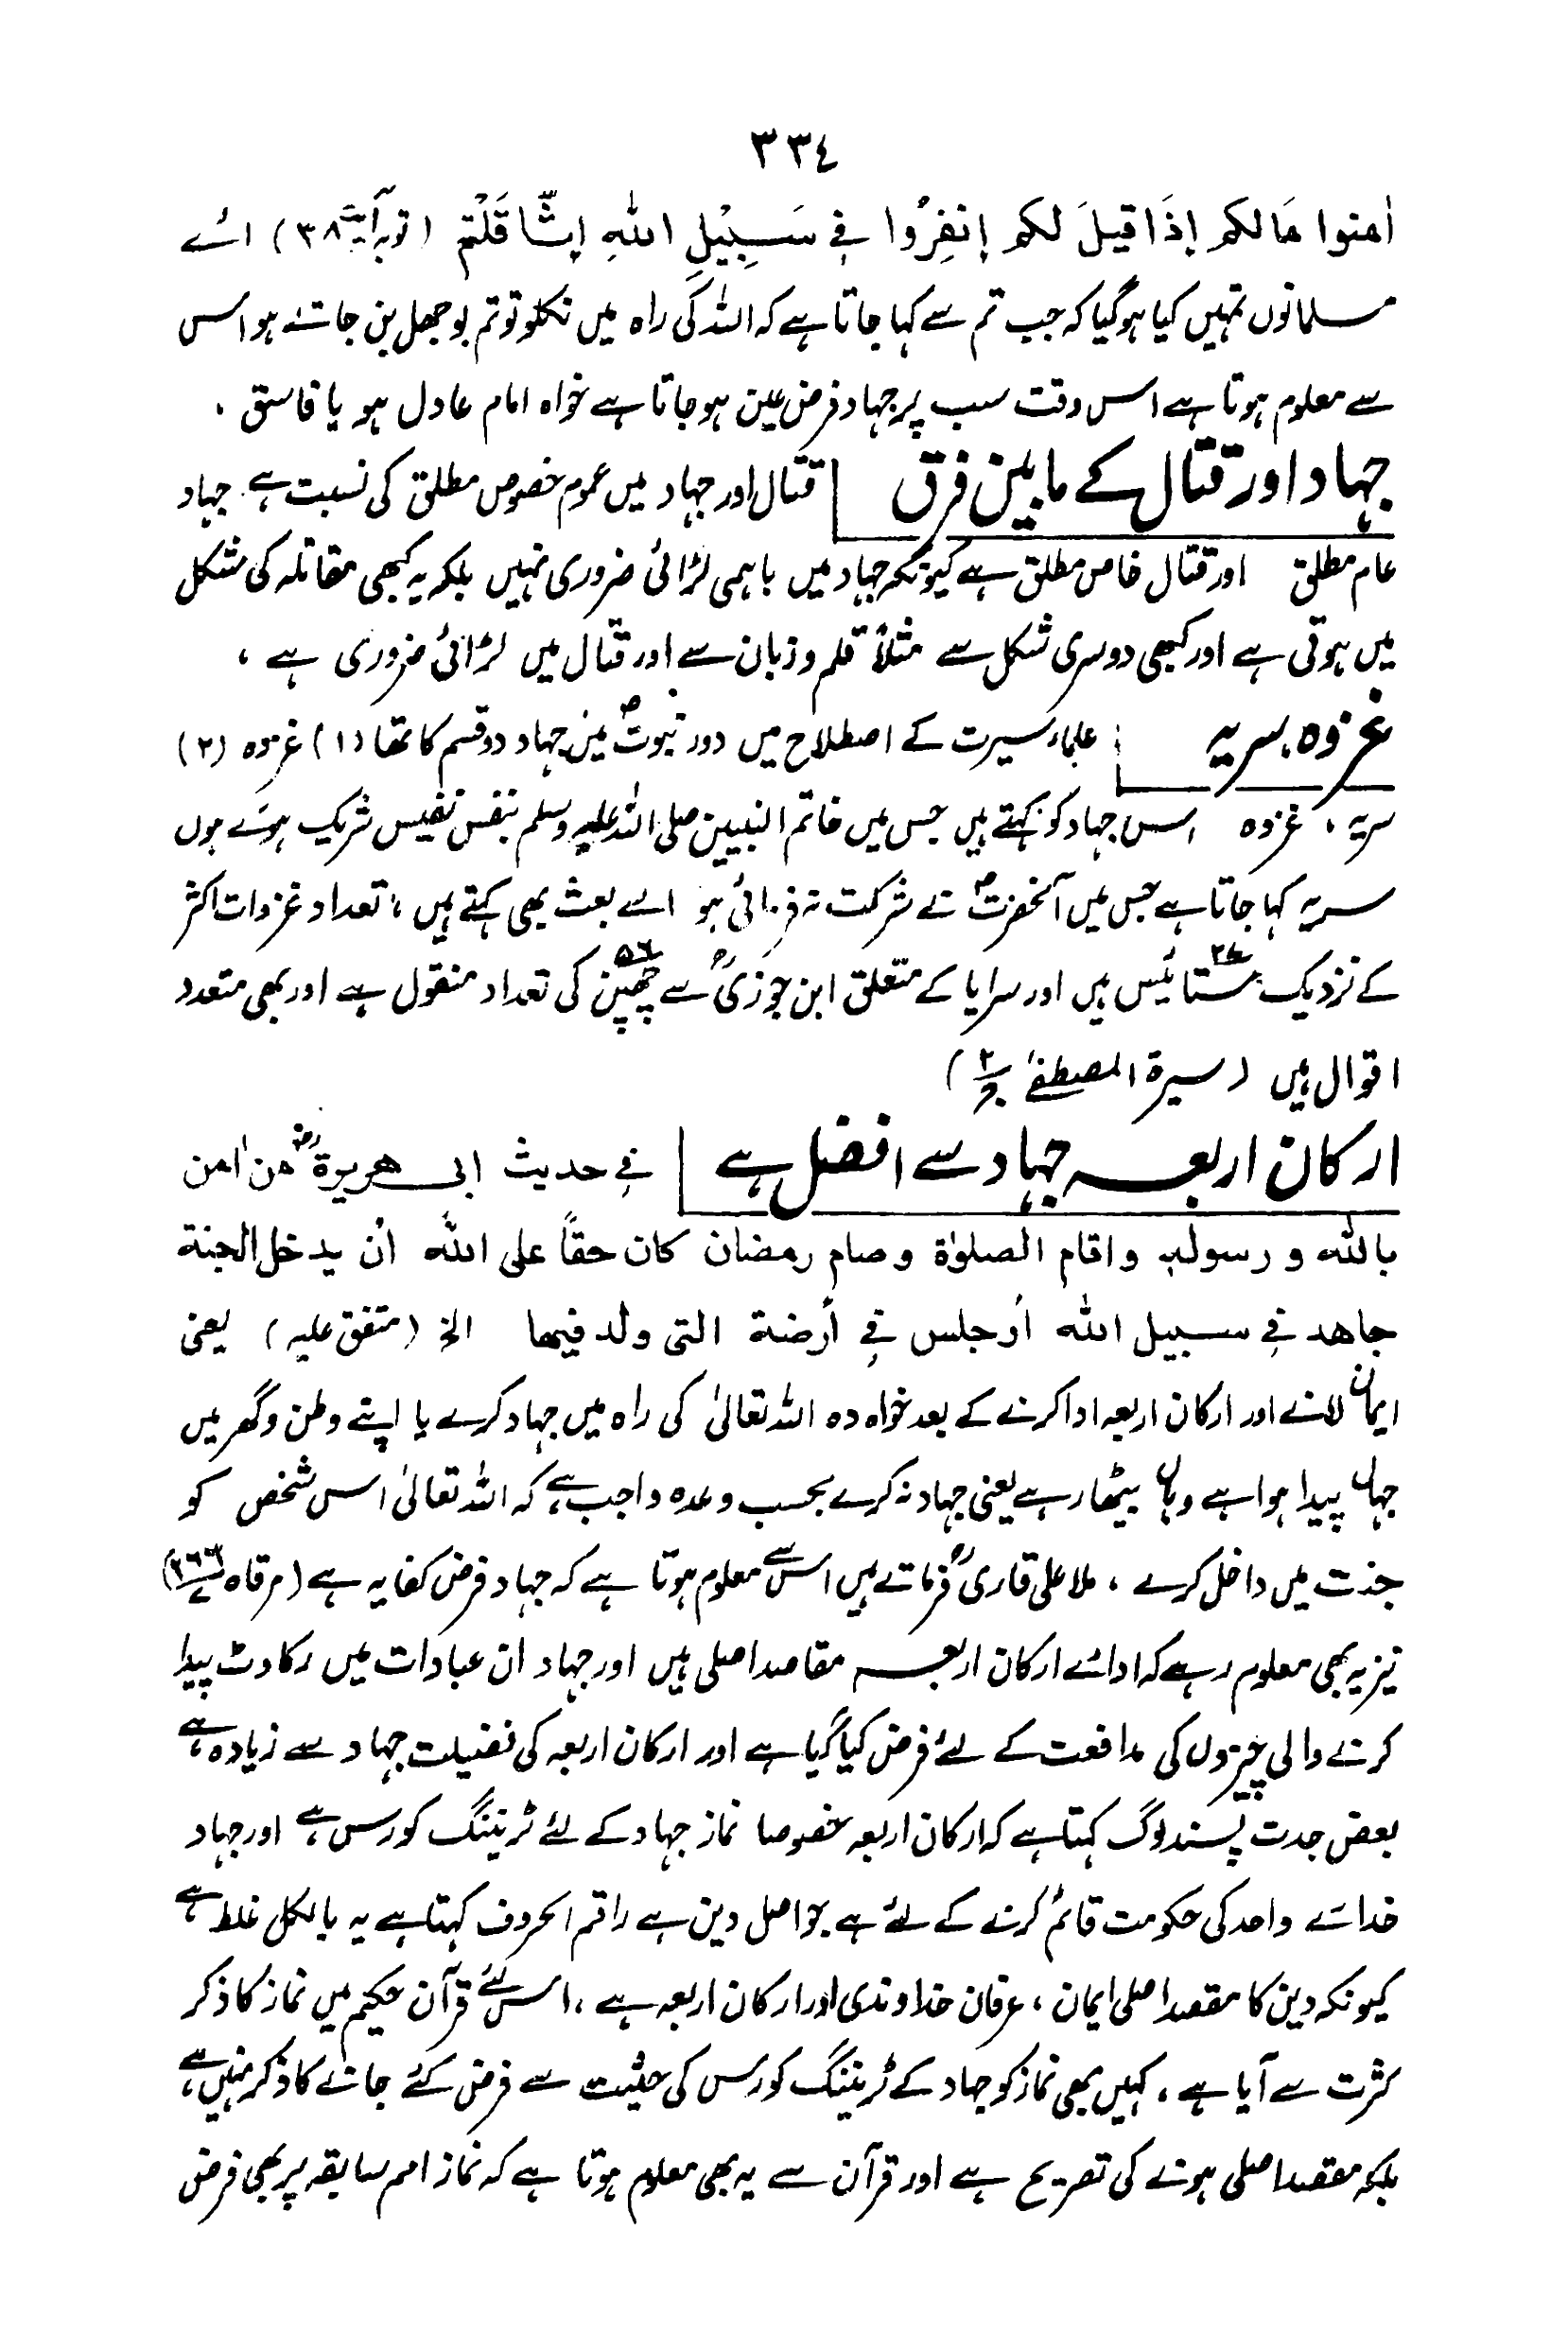 ٣٣٤
اٰمنوا مَالكم إذَا قيلَ لكم إنفِرُوا فِى سَبِيْلِ اللهِ إثَّاقَلْتم (توبہ آیت ٣٨) اے
مسلمانوں تمہیں کیا ہوگیا کہ جب تم سے کہا جاتا ہے کہ اللہ کی راہ میں نکلو تو تم بوجھل بن جاتے ہو اس
سے معلوم ہوتا ہے اس وقت سب پر جہاد فرض عین ہوجاتا ہے خواہ امام عادل ہو یا فاسق ۔
جہاد اور قتال کے مابین فرق | قتال اور جہاد میں عموم خصوص مطلق کی نسبت ہے ۔ جہاد
عام مطلق اور قتال خاص مطلق ہے کیونکہ جہاد میں باہمی لڑائی ضروری نہیں بلکہ یہ کبھی مقاتلہ کی شکل
میں ہوتی ہے اور کبھی دوسری شکل سے مثلاً قلم و زبان سے اور قتال میں لڑائی ضروری ہے ،
غزوہ ، سریہ | علماء سیرت کے اصطلاح میں دور نبوتؐ میں جہاد دو قسم کا تھا (١) غزوہ (٢)
سریہ ، غزوہ اس جہاد کو کہتے ہیں جس میں خاتم النبیین صلی اللہ علیہ وسلم بنفس نفیس شریک ہوئے ہوں
سریہ کہا جاتا ہے جس میں آنحضرتؐ نے شرکت نہ فرمائی ہو اسے بعث بھی کہتے ہیں ، تعداد غزوات اکثر
کے نزدیک ستائیس ٢٧ ہیں اور سرایا کے متعلق ابن جوزیؒ سے چھپن ٥٦ کی تعداد منقول ہے اور بھی متعدد
اقوال ہیں (سیرۃ المصطفےٰ ج ٢)
ارکان اربعہ جہاد سے افضل ہے | فِی حدیث ابی هریرةؓ من اٰمن
بالله و رسولہٖ واقام الصلوٰة وصام رمضان كان حقاً على الله أن يدخل الجنة
جاهد فِی سبيل الله أو جلس فِی أرضة التی ولد فيها الخ (متفق علیہ) یعنی
ایمان لانے اور ارکان اربعہ ادا کرنے کے بعد خواہ وہ اللہ تعالیٰ کی راہ میں جہاد کرے یا اپنے وطن و گھر میں
جہاں پیدا ہوا ہے وہاں بیٹھا رہے یعنی جہاد نہ کرے بحسب وعدہ واجب ہے کہ اللہ تعالیٰ اس شخص کو
جنت میں داخل کرے ، ملا علی قاریؒ فرماتے ہیں اس سے معلوم ہوتا ہے کہ جہاد فرض کفایہ ہے (مرقاہ
نیز یہ بھی معلوم رہے کہ ادائے ارکان اربعہ مقاصد اصلی ہیں اور جہاد ان عبادات میں رکاوٹ پیدا
کرنے والی چیزوں کی مدافعت کے لئے فرض کیا گیا ہے اور ارکان اربعہ کی فضیلت جہاد سے زیادہ ہے
بعض جدت پسند لوگ کہتا ہے کہ ارکان اربعہ خصوصا نماز جہاد کے لئے ٹریننگ کورس ہے اور جہاد
خدائے واحد کی حکومت قائم کرنے کے لئے ہے جو اصل دین ہے راقم الحروف کہتا ہے یہ بالکل غلط ہے
کیونکہ دین کا مقصد اصلی ایمان ، عرفان خداوندی اور ارکان اربعہ ہے ، اس لئے قرآن حکیم میں نماز کا ذکر
کثرت سے آیا ہے ، کہیں بھی نماز کو جہاد کے ٹریننگ کورس کی حیثیت سے فرض کئے جانے کا ذکر نہیں ہے
بلکہ مقصد اصلی ہونے کی تصریح ہے اور قرآن سے یہ بھی معلوم ہوتا ہے کہ نماز امم سابقہ پر بھی فرض